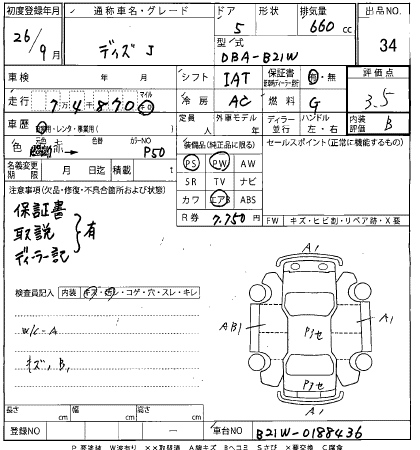 初度登録年月 通称車名・グレード ドア 形状 排気量 出品NO.
26/9月 デイズ J 5 660cc 34
型式 DBA-B21W
車検 年 月 シフト IAT 保証書 有・無 評価点
走行 7万4870 マイル キロ 冷房 AC 燃料 G 3.5
車歴 自家用・レンタ・事業用( ) 定員 人 外車モデル 年 ディーラー 並行 ハンドル 左・右 内装評価 B
色 赤 色替 カラーNO P50 装備品(純正品に限る) セールスポイント(正常に機能するもの)
名義変更期限 月 日迄 積載 t PS PW AW
SR TV ナビ
注意事項(欠品・修復・不具合箇所および状態) カワ エアB ABS
R券 7,750円 FW キズ・ヒビ割・リペア跡・X要
保証書
取説 有
ディーラー記
A1
検査員記入 内装 キズ・汚レ・コゲ・穴・スレ・キレ
AB1 P1セ A1
W/C-A
P1セ
キズ, B,
A1
長さ cm 幅 cm 高さ cm
登録NO ー 車台NO B21W-0188436
P要塗装 W波有り XX取替済 A線キズ Bヘコミ Sさび X要交換 C腐食